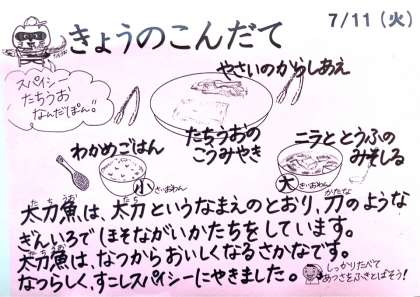 きょうのこんだて
7/11(火)
スパイシー
たちうお
なんだぽん。"
やさいのからしあえ
たちうおの
こうみやき
わかめごはん
小 さいおわん
ニラととうふの
みそしる
大 さいおわん
太刀魚は、太刀というなまえのとおり、刀のような
ぎんいろでほそながいかたちをしています。
太刀魚は、なつからおいしくなるさかなです。
なつらしく、すこしスパイシーにやきました。
しっかりたべて
あつさをふきとばそう!